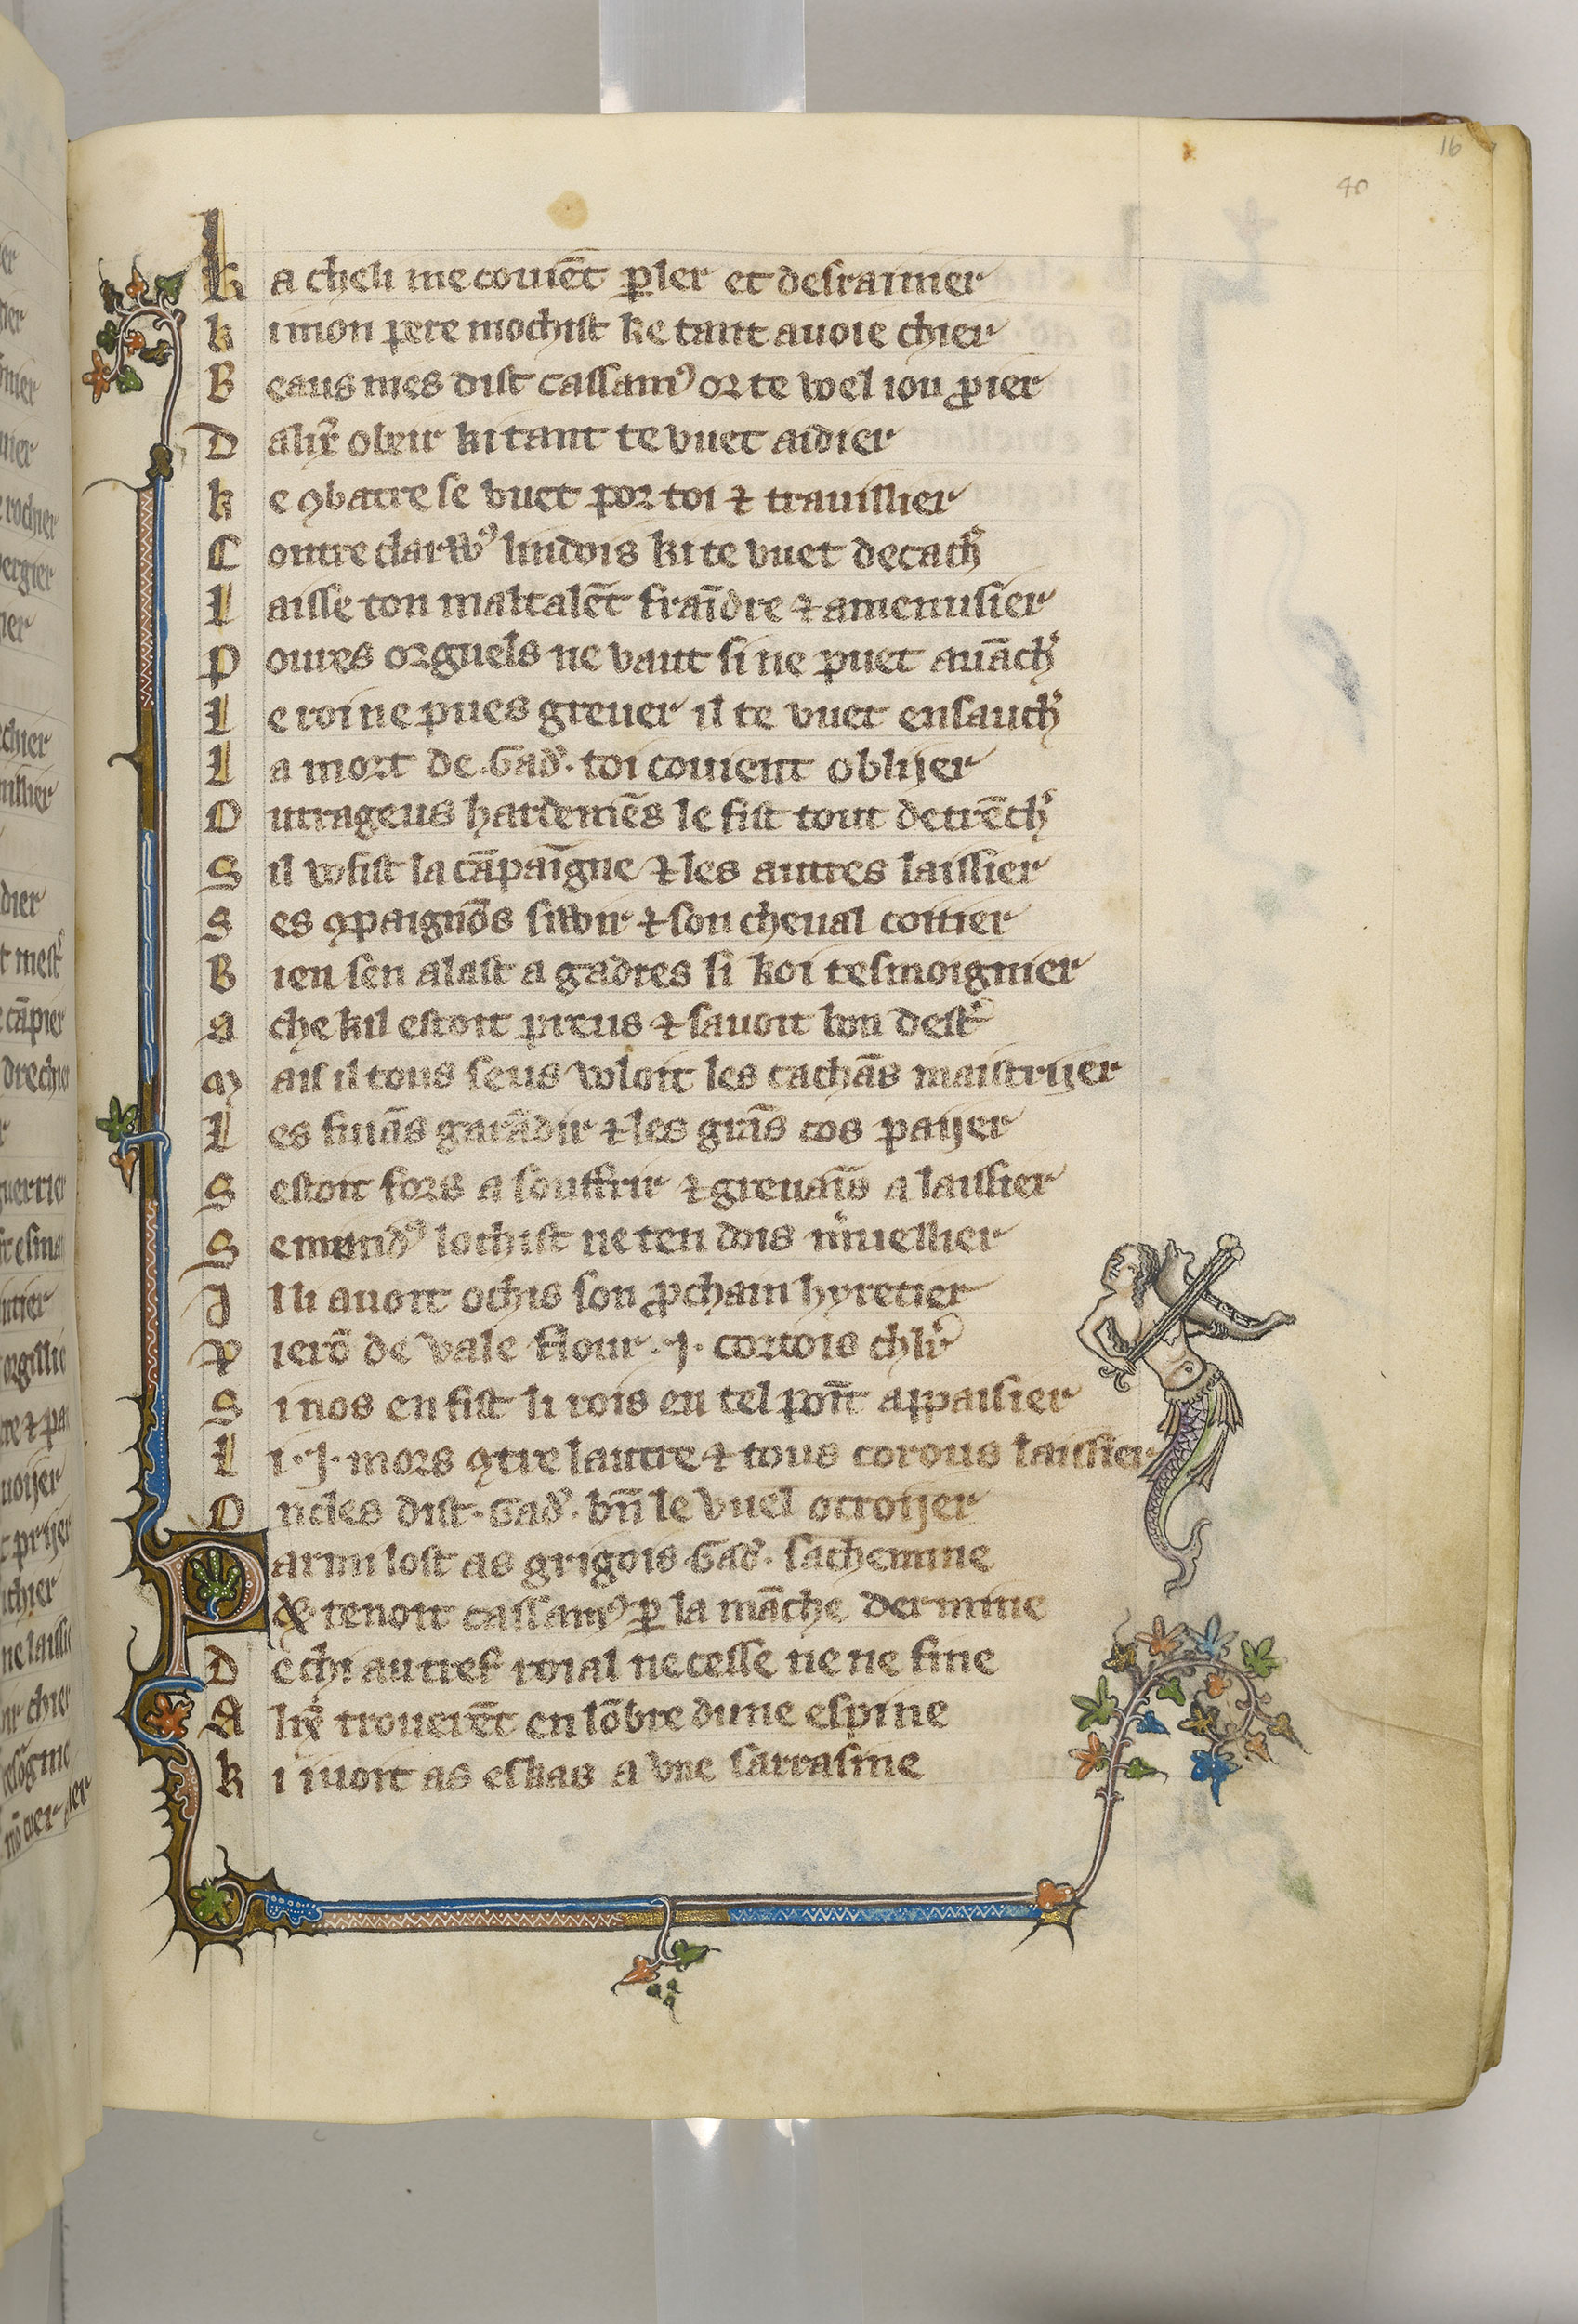 16
40
K a cheli me couiēt ꝑler et desrainier
k i mon pere mochist ke tant auoie chier
B eaus nies dist cassamꝰ or te wel iou ꝓier
D alix̄r obeir ki tant te vuet aidier
k e ꝯbatre se vuet por toi ⁊ trauillier
C ontre clarwꝰ lindois ki te vuet decachr̄
L aisse ton maltalēt fraīdre ⁊ amenusier
P oures orguels ne vaut si ne puet auāchr̄
L e roi ne pues greuer il te vuet ensauchr̄
L a mort de .Gadr̄. toi couient oblijer
O utrageus hardemēs le fist tout detrēchr̄
S il wsist la cāpaīgne ⁊ les autres laissier
S es ꝯpaignōs siwir ⁊ son cheual coitier
B ien sen alast a gadres si koi tesmoignier
A che kil estoit preus ⁊ sauoit bon destr̄
M ais il tous seus wloit les cachās maistrijer
L es fuiās garādir ⁊ les grās cos paijer
S estoit fors a souffrir ⁊ greuaīs a laissier
S emnidꝰ lochist ne ten dois mͥuellier
J l li auoit ochis son ꝓchain hyretier
P ierō de vale flour .j. cortois chlr̄
S i nos en fist li rois en tel pōt appaisier
L i .j. mors ꝯtre lautre ⁊ tous corous laissier
O ncles dist .Gadr̄. bn̄ le vuel otroijer
P armi lost as grigois .Gadr̄. sachemine
& tenoit cassamꝰ ꝑ la māche dermine
D e chi au tref roial ne cesse ne ne fine
A lix̄r trouerēt en lōbre dune espine
K i iuoit as eskas a vne sarrasine